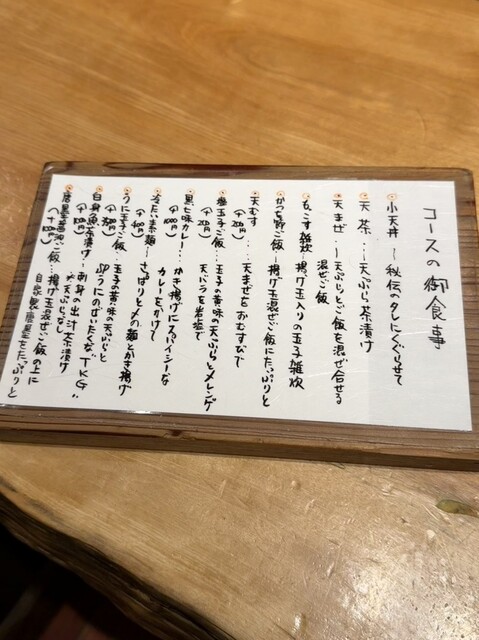 コースの御食事
小天丼 … 秘伝のタレにくぐらせて
天茶 … 天ぷら茶漬け
天まぜ … 天ぷらとご飯を混ぜ合せる
混ぜご飯
もこす雑炊 … 揚げ玉入りの玉子雑炊
かつを節ご飯 … 揚げ玉混ぜご飯にたっぷりと
天むす … 天まぜをおむすびで
塩玉子ご飯 … 玉子の黄味の天ぷらとメレンゲ
天バラを岩塩で
黒七味カレー … かき揚げにスパイシーな
カレーをかけて
冷たい素麺 … さっぱりと〆の麺とかき揚げ
うに玉子ご飯 … 玉子の黄味の天ぷらと
卵うにのぜいたくな"TKG"
白身魚茶漬け … 刺身の出汁茶漬け
※天ぷらなし
唐墨醤油ご飯 … 揚げ玉混ぜご飯の上に
自家製唐墨をたっぷりと